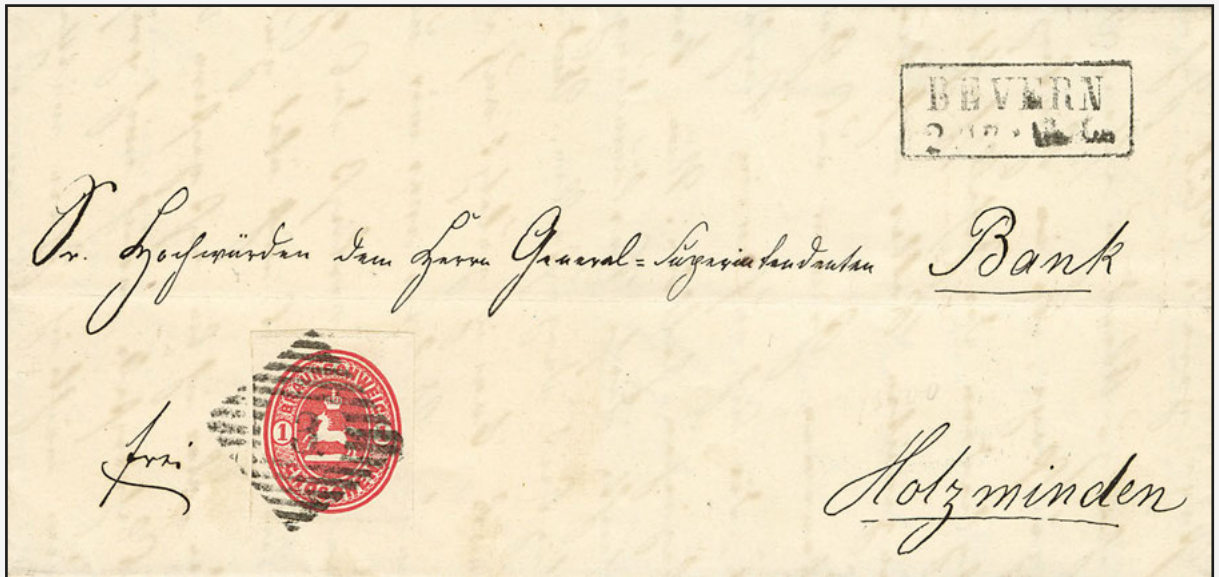 BEVERN
Sr. Hochwürden dem Herrn General=Superintendenten Bank
1 BRAUNSCHWEIG
GROSCHEN
frei
Holzminden